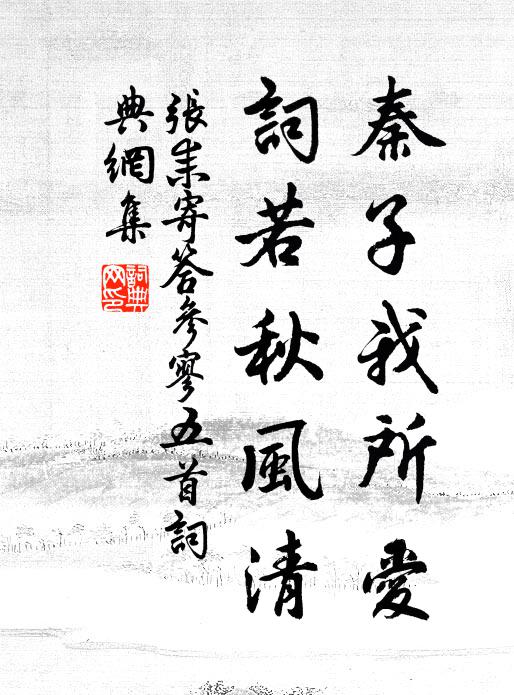 秦子我所愛
詞若秋風清
張耒寄答參寥五首詞
典網集
詞典
网印